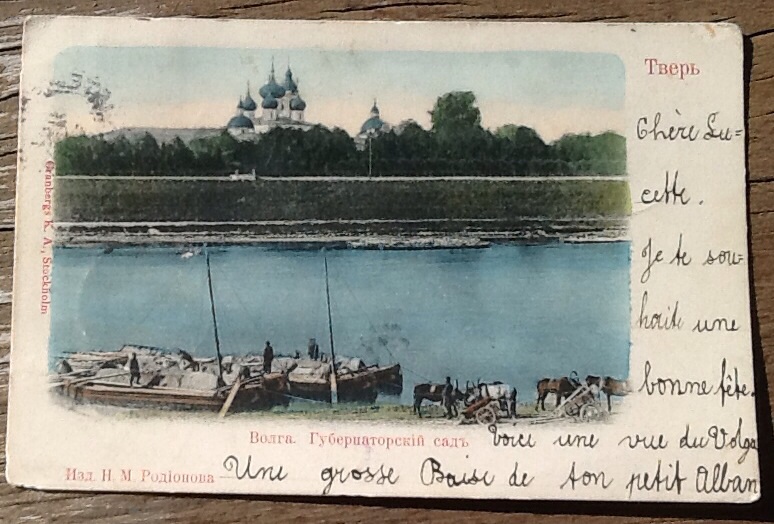 Тверь
Chère Lu=
cette.
Je te sou=
haite une
bonne fête.
Voici une vue du Volga
Une grosse Baise de ton petit Alban
Granbergs K. A., Stockholm
Волга. Губернаторскій садъ
Изд. Н. М. Родіонова